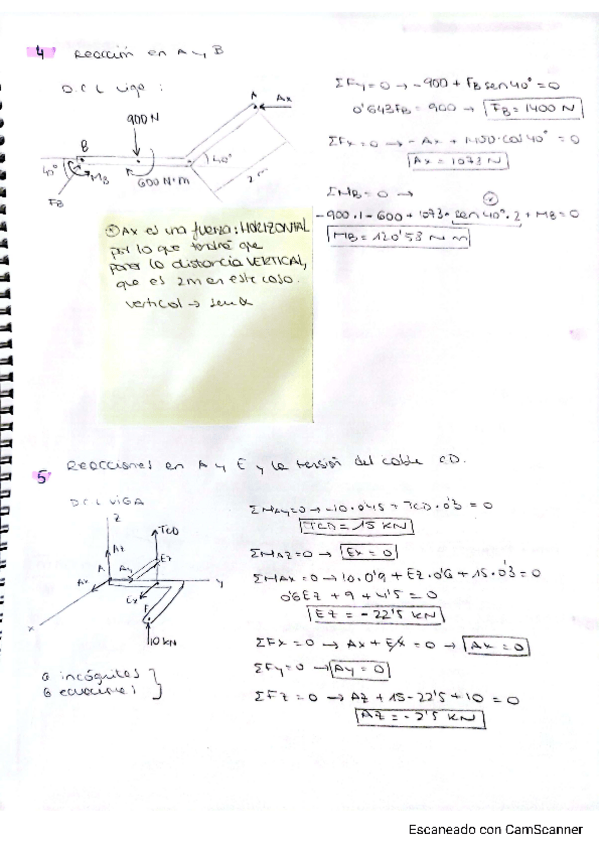 4 Reacción en A y B
D.C.L viga:
900N
A
Ax
B
40°
MB
600 N·m
40°
2 m
FB
ΣFy=0 → -900 + FB sen40° = 0
0'643FB = 900 → FB = 1400 N
ΣFx=0 → -Ax + 1400·cos40° = 0
Ax = 1073 N
ΣMB=0 →
-900·1-600+1073·sen40°·2+MB=0
MB = 120'53 N m
Ax es una fuerza: HORIZONTAL
por lo que tendré que
poner la distancia VERTICAL,
que es 2m en este caso.
vertical → senα
5 Reacciones en A y E y la tensión del cable CD.
DCL VIGA
z
TCD
Az
Ez
A
Ay
Ax
y
Ex
F
x
10 kN
6 incógnitas
6 ecuaciones
ΣMAy=0 → -10·0'45 + TCD·0'3 = 0
TCD = 15 KN
ΣMAz=0 → Ex = 0
ΣMAx=0 → 10·0'9 + Ez·0'6 + 15·0'3 = 0
0'6Ez + 9 + 4'5 = 0
Ez = -22'5 KN
ΣFx = 0 → Ax + Ex = 0 → Ax = 0
ΣFy=0 → Ay = 0
ΣFz = 0 → Az + 15-22'5+10 = 0
Az = -2'5 KN
Escaneado con CamScanner